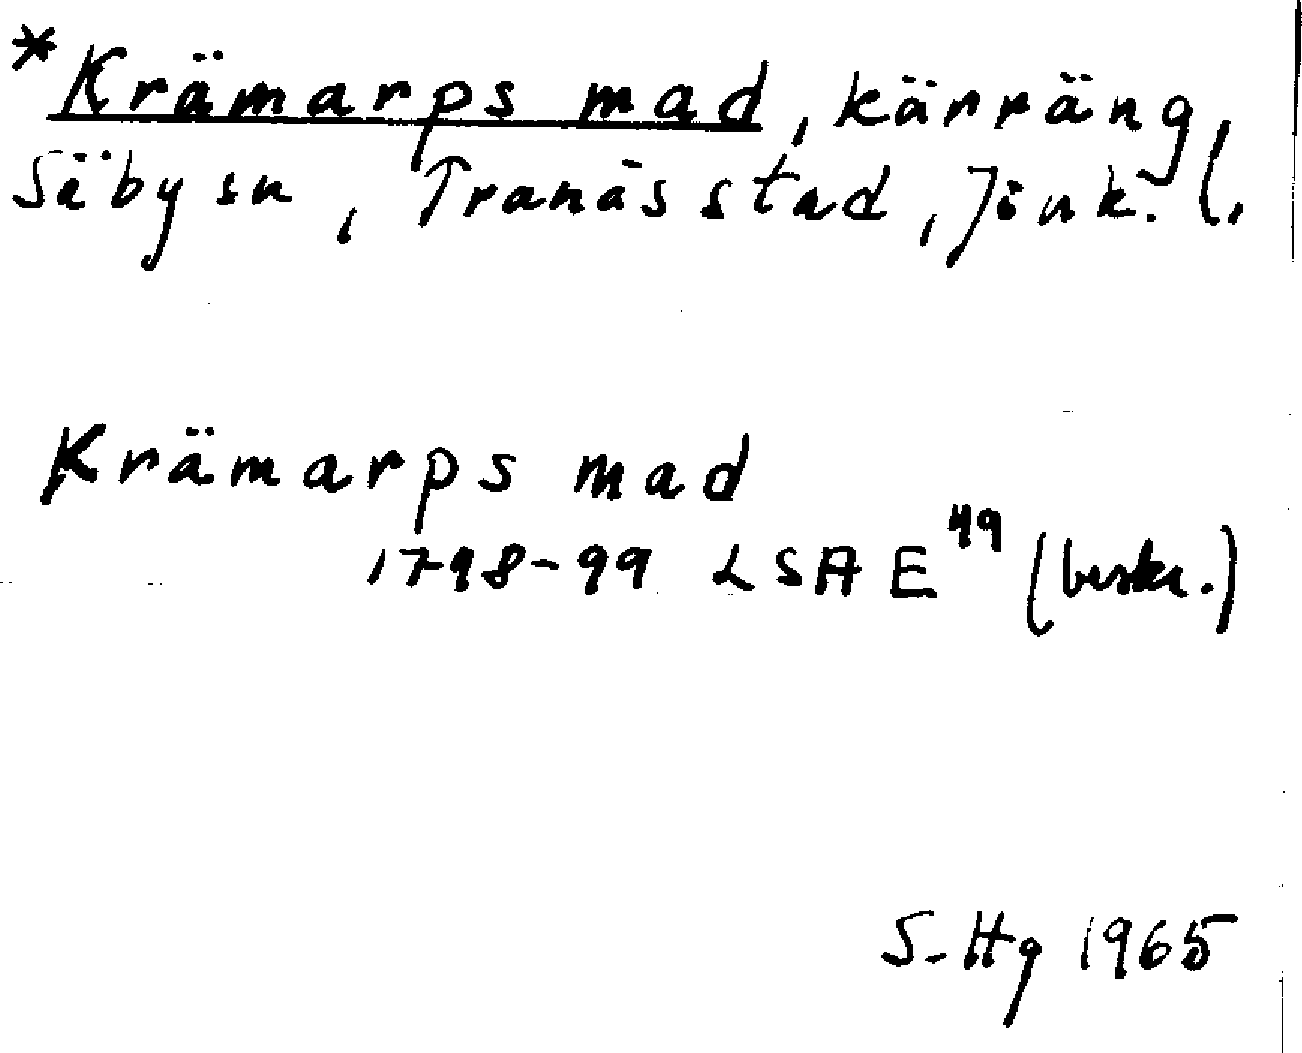 *Krämarps mad, kärräng,
Säby sn, Tranås stad, Jönk. l.
Krämarps mad
1798-99 LSA E⁴⁹ (beskr.)
S-Hg 1965